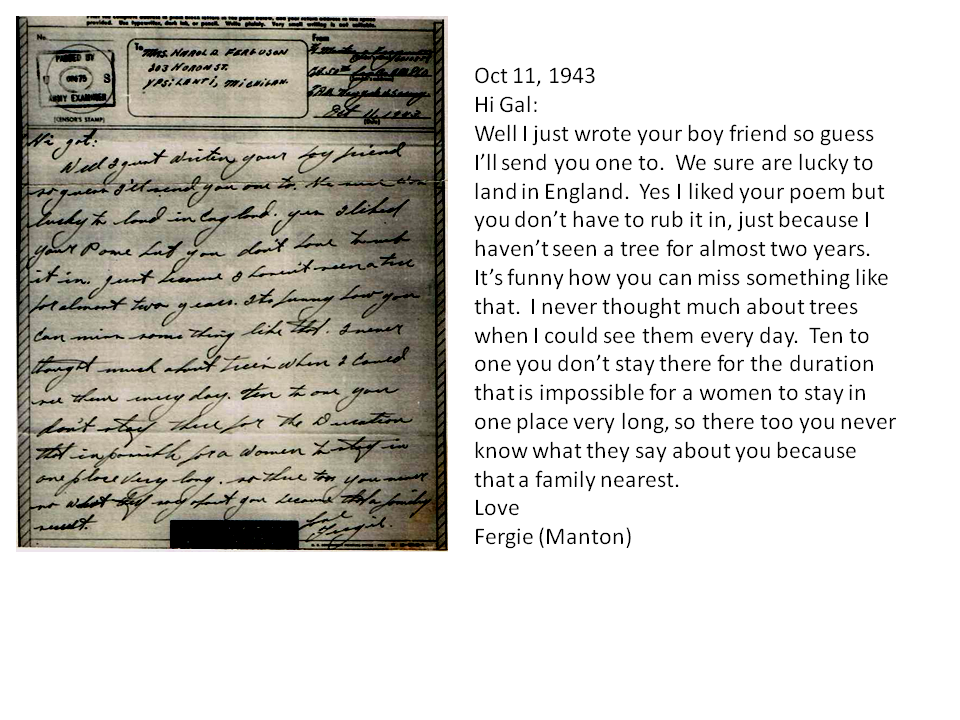 provided. Use typewriter, dark ink, or pencil. Write plainly. Very small writing is not suitable.
No.
PASSED BY
U S
ARMY EXAMINER
(CENSOR'S STAMP)
To
MRS. HAROLD FERGUSON
203 HURON ST.
YPSILANTI, MICHIGAN.
From
Oct 11, 1943
(Date)
Hi gal:
Well I just written your boy friend
so guess I'll send you one to. We sure are
lucky to land in England. yes I liked
your Pome but you don't have to rub
it in. just because I haven't seen a tree
for almost two years. Its funny how you
can miss something like that. I never
thought much about trees when I could
see them every day. ten to one you
don't stay there for the Duration
that impossible for a women to stay in
one place very long. so there too you never
no what they say about you because family
Love
Fergie.
Oct 11, 1943
Hi Gal:
Well I just wrote your boy friend so guess
I'll send you one to. We sure are lucky to
land in England. Yes I liked your poem but
you don't have to rub it in, just because I
haven't seen a tree for almost two years.
It's funny how you can miss something like
that. I never thought much about trees
when I could see them every day. Ten to
one you don't stay there for the duration
that is impossible for a women to stay in
one place very long, so there too you never
know what they say about you because
that a family nearest.
Love
Fergie (Manton)